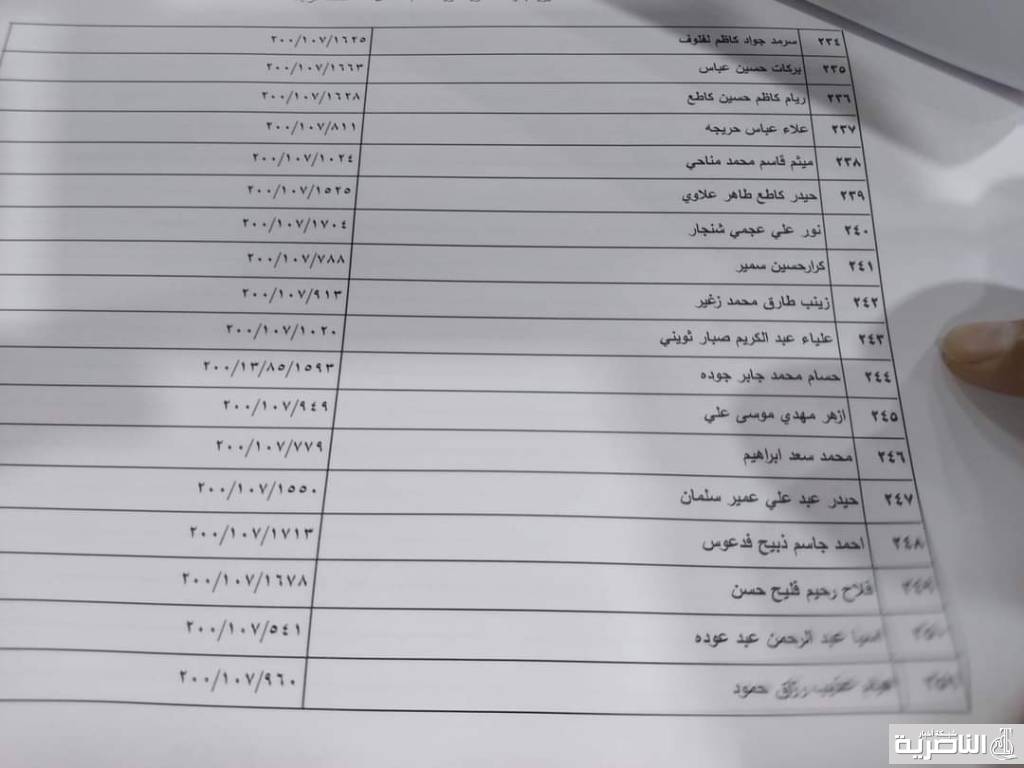 ٢٣٤ سرمد جواد كاظم لفلوف ٢٠٠/١٠٧/١٦٢٥
٢٣٥ بركات حسين عباس ٢٠٠/١٠٧/١٦٦٣
٢٣٦ ريام كاظم حسين كاطع ٢٠٠/١٠٧/١٦٢٨
٢٣٧ علاء عباس حريجه ٢٠٠/١٠٧/٨١١
٢٣٨ ميثم قاسم محمد مناحي ٢٠٠/١٠٧/١٠٢٤
٢٣٩ حيدر كاطع طاهر علاوي ٢٠٠/١٠٧/١٥٢٥
٢٤٠ نور علي عجمي شنجار ٢٠٠/١٠٧/١٧٠٤
٢٤١ كرارحسين سمير ٢٠٠/١٠٧/٧٨٨
٢٤٢ زينب طارق محمد زغير ٢٠٠/١٠٧/٩١٣
٢٤٣ علياء عبد الكريم صبار ثويني ٢٠٠/١٠٧/١٠٢٠
٢٤٤ حسام محمد جابر جوده ٢٠٠/١٣/٨٥/١٥٩٣
٢٤٥ ازهر مهدي موسى علي ٢٠٠/١٠٧/٩٤٩
٢٤٦ محمد سعد ابراهيم ٢٠٠/١٠٧/٧٧٩
٢٤٧ حيدر عبد علي عمير سلمان ٢٠٠/١٠٧/١٥٥٠
٢٤٨ احمد جاسم ذبيح فدعوس ٢٠٠/١٠٧/١٧١٣
٢٤٩ فلاح رحيم فليح حسن ٢٠٠/١٠٧/١٦٧٨
٢٥٠ عبد الرحمن عبد عوده ٢٠٠/١٠٧/٥٤١
٢٥١ رزاق حمود ٢٠٠/١٠٧/٩٦٠
شبكة أخبار
الناصرية